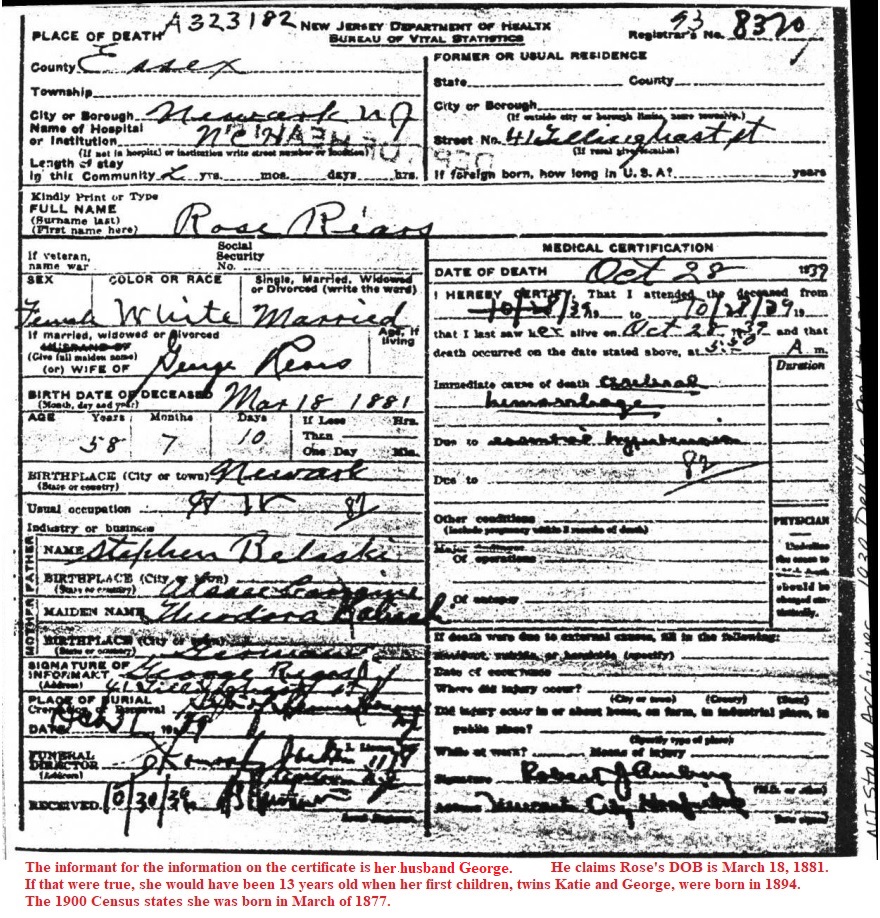 A323182
NEW JERSEY DEPARTMENT OF HEALTH
BUREAU OF VITAL STATISTICS
Registrar's No. 93 8370
PLACE OF DEATH
County Essex
Township
City or Borough Newark NJ
Name of Hospital
or Institution
(If not in hospital or institution write street number or location)
Length of stay
in this Community L yrs. mos. days hrs.
FORMER OR USUAL RESIDENCE
State County
City or Borough
(If outside city or borough limits, name township.)
Street No. 41 Tillinghast st
(If rural give location)
If foreign born, how long in U.S.A.? years
Kindly Print or Type
FULL NAME
(Surname last)
(First name here) Rose Rears
If veteran,
name war
Social
Security
No.
SEX COLOR OR RACE Single, Married, Widowed
or Divorced (write the word)
Female White Married
If married, widowed or divorced
HUSBAND OF
(Give full maiden name)
(or) WIFE OF George Rears
Age, if
living
BIRTH DATE OF DECEASED Mar 18 1881
(Month, day and year)
AGE Years Months Days If Less Hrs.
Than
One Day Min.
58 7 10
BIRTHPLACE (City or town) Newark
(State or country)
Usual occupation H W 87
Industry or business
FATHER
NAME Stephen Belaski
BIRTHPLACE (City or town)
(State or country) Alsace Lorraine
MOTHER
MAIDEN NAME Theodora
BIRTHPLACE (City or town)
(State or country) Germany
SIGNATURE OF
INFORMANT George
(Address) 41 Tillinghast st
PLACE OF BURIAL
Cremation or Removal
DATE Oct 31 1939
FUNERAL
DIRECTOR
(Address)
RECEIVED 10/30/39
MEDICAL CERTIFICATION
DATE OF DEATH Oct 28 1939
I HEREBY CERTIFY, That I attended the deceased from
10/28/39 to 10/28/39
that I last saw her alive on Oct 28 1939 and that
death occurred on the date stated above, at 5:50 A m.
Duration
Immediate cause of death cerebral
hemorrhage
Due to essential hypertension
Due to 82
Other conditions
(Include pregnancy within 3 months of death)
Major findings
Of operations
Of autopsy
PHYSICIAN
Underline
the cause to
which death
should be
charged sta-
tistically.
If death were due to external causes, fill in the following:
Accident, suicide, or homicide (specify)
Date of occurrence
Where did injury occur?
(City or town) (County) (State)
Did injury occur in or about home, on farm, in industrial place, in
public place?
(Specify type of place)
While at work? Means of injury
Signature Robert J
(M.D. or other)
Address Newark City Hospital
Date signed
NJ State Archives 1939 Deaths
The informant for the information on the certificate is her husband George. He claims Rose's DOB is March 18, 1881.
If that were true, she would have been 13 years old when her first children, twins Katie and George, were born in 1894.
The 1900 Census states she was born in March of 1877.